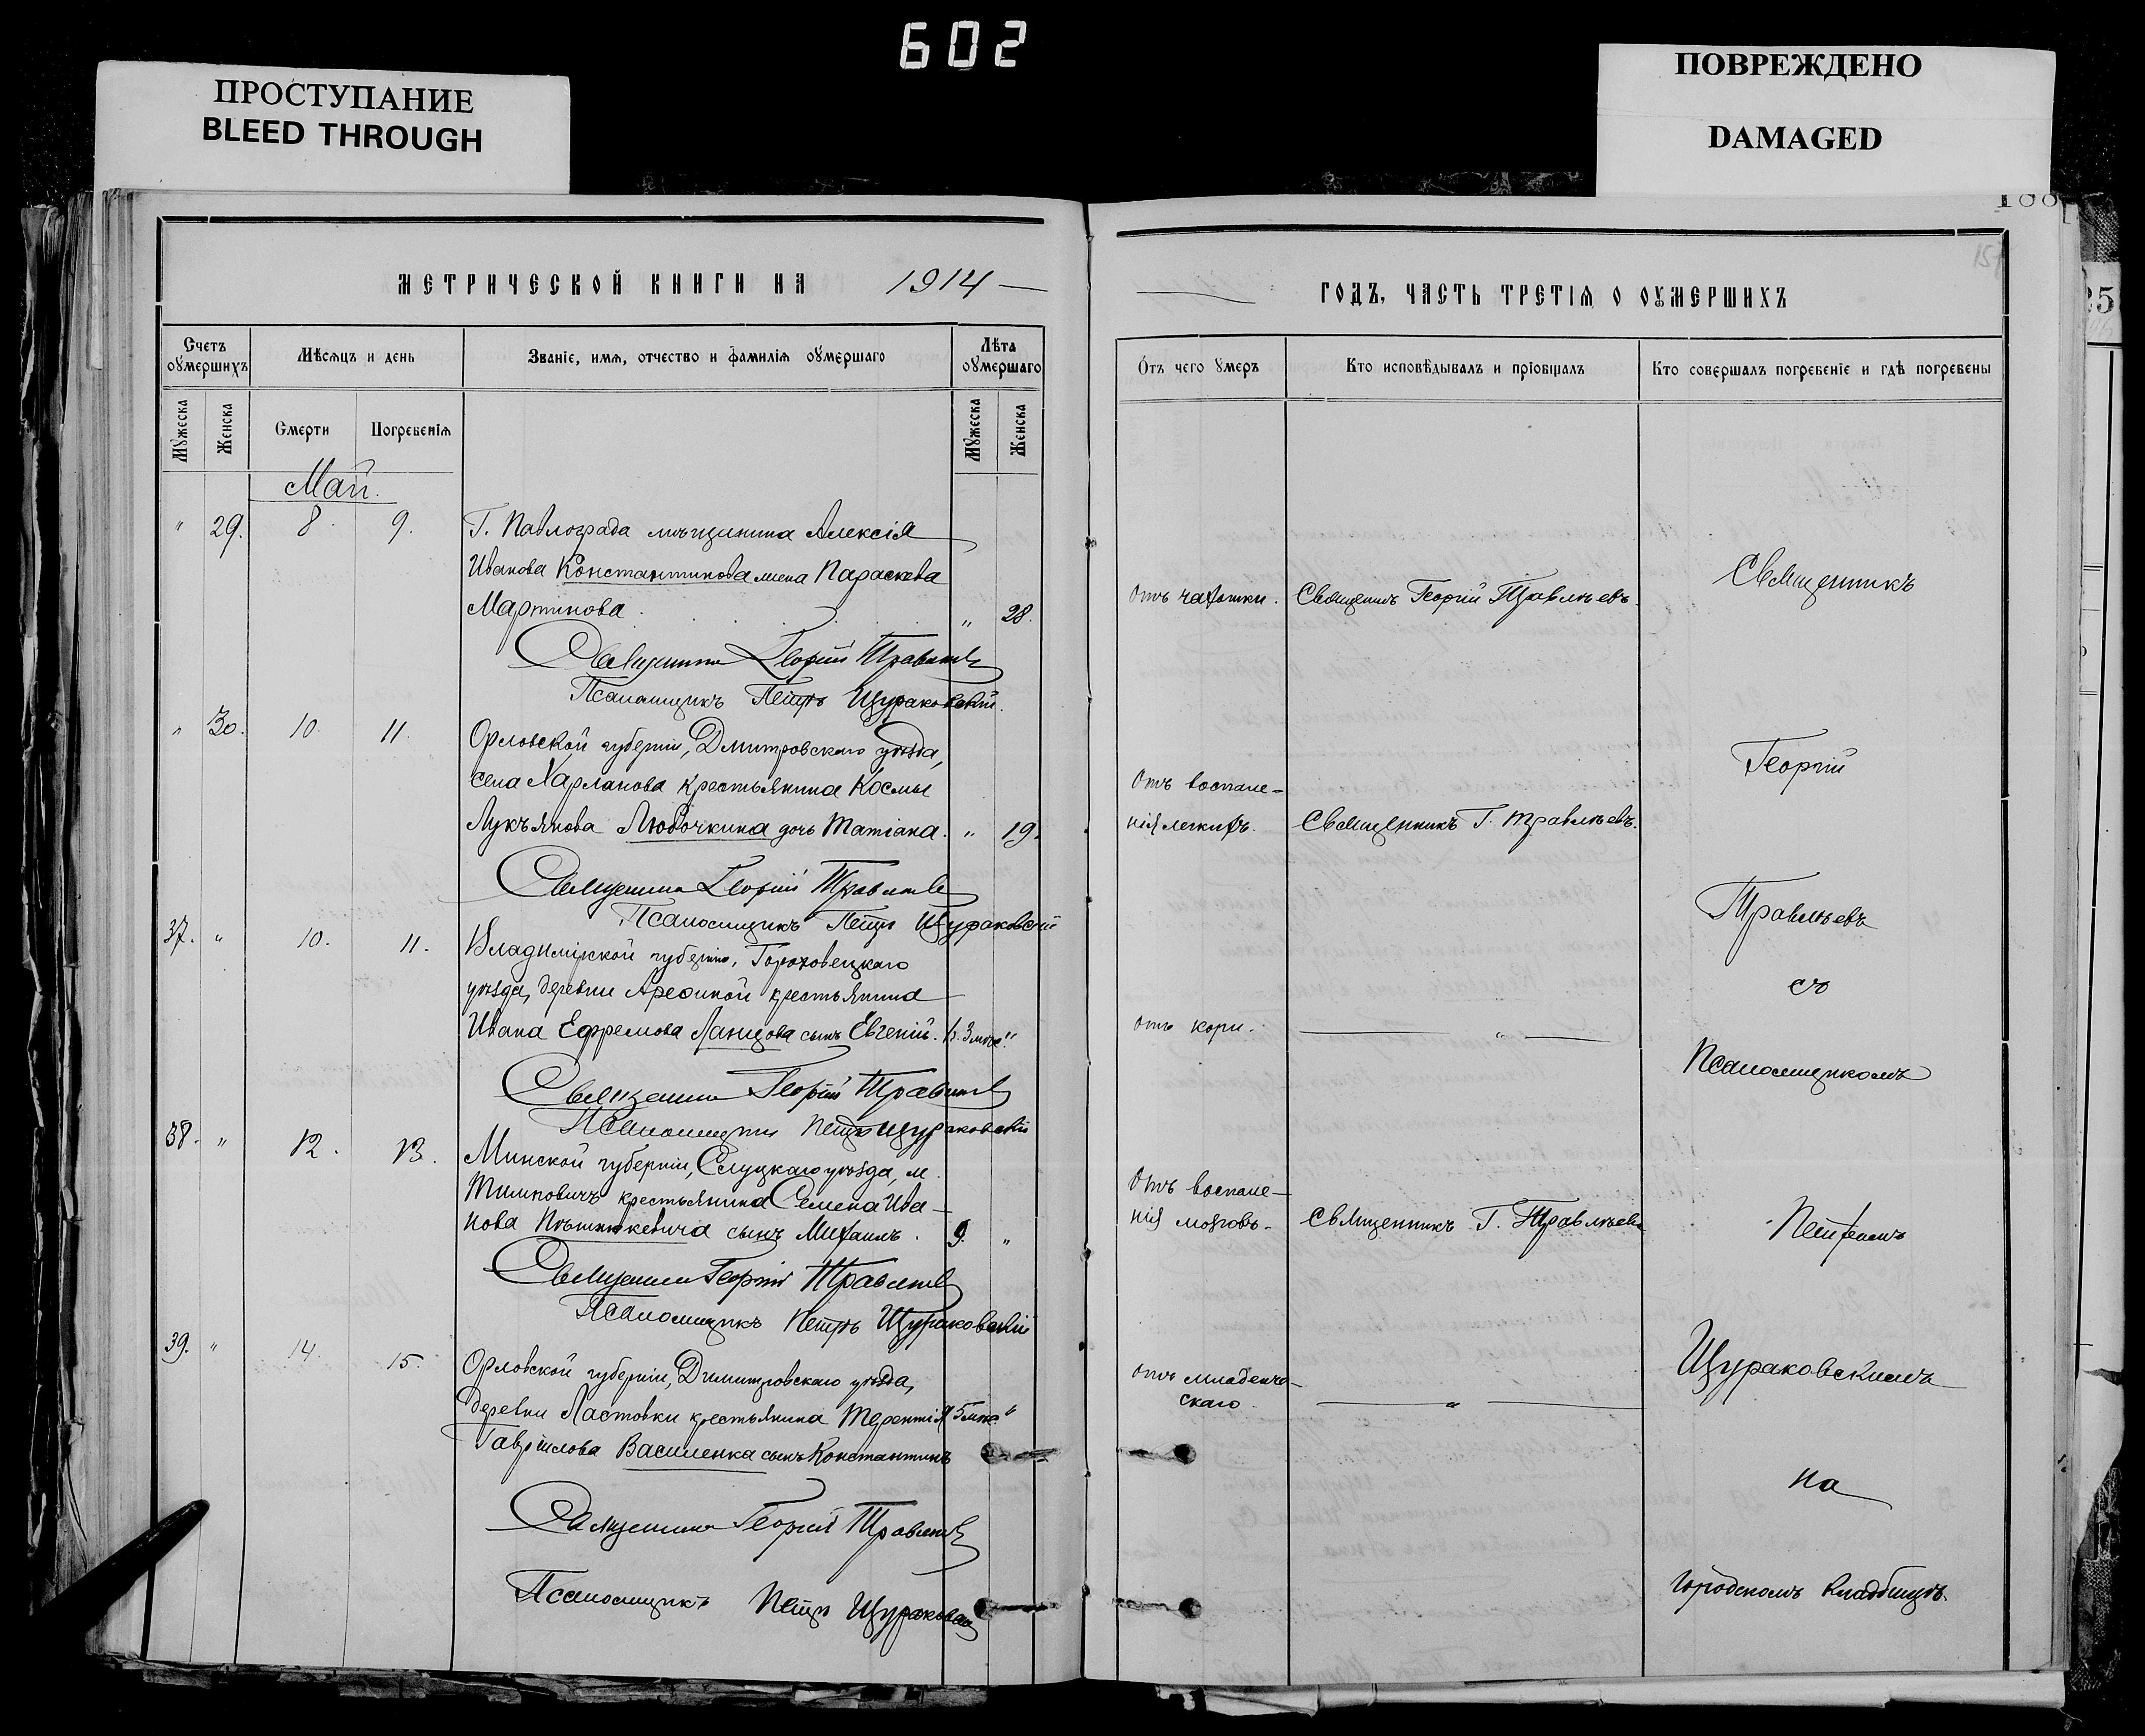 602
ПРОСТУПАНИЕ
BLEED THROUGH
ПОВРЕЖДЕНО
DAMAGED
МЕТРИЧЕСКОЙ КНИГИ НА 1914
Счетъ оумершихъ
Мѣсяцъ и день
Званіе, имя, отчество и фамилія оумершаго
Лѣта оумершаго
Мужеска
Женска
Смерти
Погребенія
Мужеска
Женска
Май.
" 29. 8. 9. Г. Павлограда мѣщанина Алексія
Иванова Константинова жена Параскева
Мартинова. " 28.
Священникъ Георгій Травлѣевъ
Псаломщикъ Петръ Щураковскій.
" 30. 10. 11. Орловской губерніи, Дмитровскаго уѣзда,
села Харланова крестьянина Космы
Лукъянова Любочкина дочь Татіана. " 19.
Священникъ Георгій Травлѣевъ
Псаломщикъ Петръ Щураковскій
37. " 10. 11. Владимірской губерніи, Гороховецкаго
уѣзда, деревни Арефиной крестьянина
Ивана Ефремова Ланцова сынъ Евгеній. "
Священникъ Георгій Травлѣевъ
Псаломщикъ Петръ Щураковскій
38. " 12. 13. Минской губерніи, Слуцкаго уѣзда, м.
Тимковичъ крестьянина Семена Ива-
нова сынъ Михаилъ. 9. "
Священникъ Георгій Травлѣевъ
Псаломщикъ Петръ Щураковскій
39. " 14. 15. Орловской губерніи, Димитровскаго уѣзда,
деревни Ластовки крестьянина Терентія 5 мѣс. "
Гавріилова Василенка сынъ Константинъ
Священникъ Георгій Травлѣевъ
Псаломщикъ Петръ Щураковскій
ГОДЪ, ЧАСТЬ ТРЕТІЯ О ОУМЕРШИХЪ
Отъ чего умеръ
Кто исповѣдывалъ и пріобщалъ
Кто совершалъ погребеніе и гдѣ погребены
Отъ чахотки. Священникъ Георгій Травлѣевъ.
Отъ воспале-
нія легкихъ. Священникъ Г. Травлѣевъ.
Отъ кори. "
Отъ воспале-
нія мозговъ. Священникъ Г. Травлѣевъ
Отъ младенче-
скаго. "
Священникъ
Георгій
Травлѣевъ
съ
Псаломщикомъ
Петромъ
Щураковскимъ
на
городскомъ кладбищѣ.